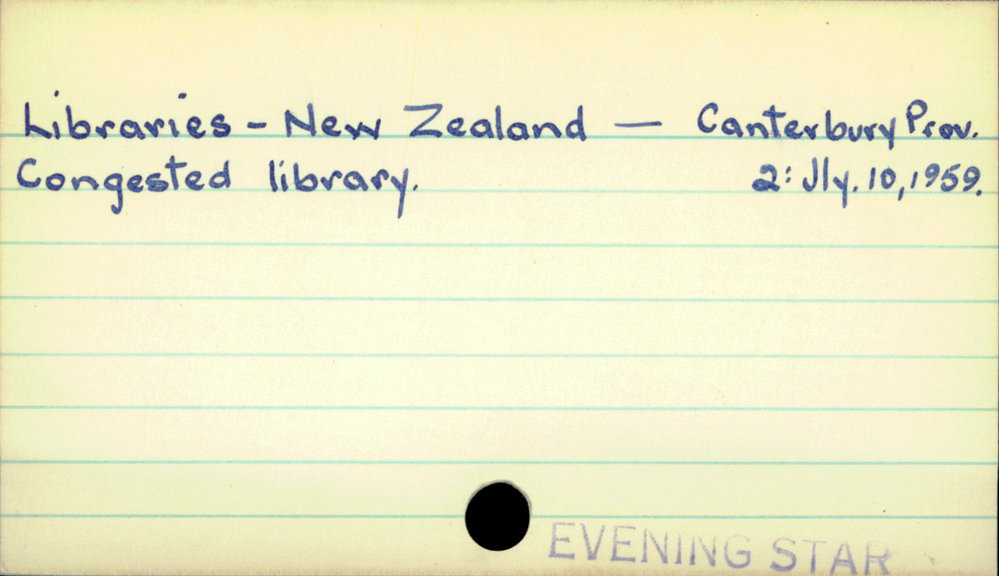 Libraries - New Zealand — Canterbury Prov.
Congested library. 2: Jly. 10, 1959.
EVENING STAR